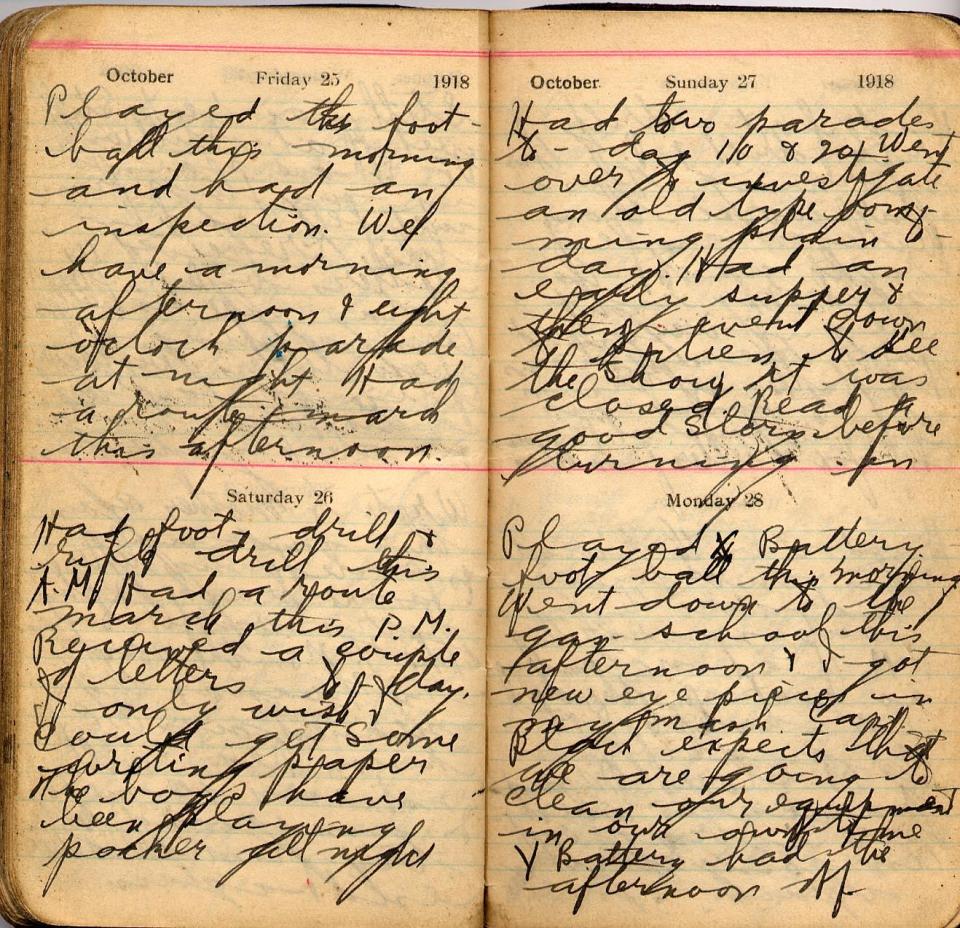 October Friday 25 1918
Played this foot-
ball this morning
and had an
inspection. We
have a morning
afternoon & eight
oclock parade
at night Had
a route march
this afternoon.
Saturday 26
Had foot drill &
rifle drill this
A.M. Had a route
march this P.M.
Received a couple
of letters to day.
I only wish I
could get some
writing paper
The boys have
been playing
pocker all night
October Sunday 27 1918
Had two parades
to-day 10 & 2. Went
over to investigate
an old type
plain
day. Had an
early supper &
then went down
to see
the show it was
closed. Read a
good story before
turning in
Monday 28
Played X Battery
foot ball this morning
Went down to the
gas school this
afternoon & I got
new eye pieces in
my mask Capt
Black expects that
we are going to
clean our equipment
in our own time
Y Battery had the
afternoon off